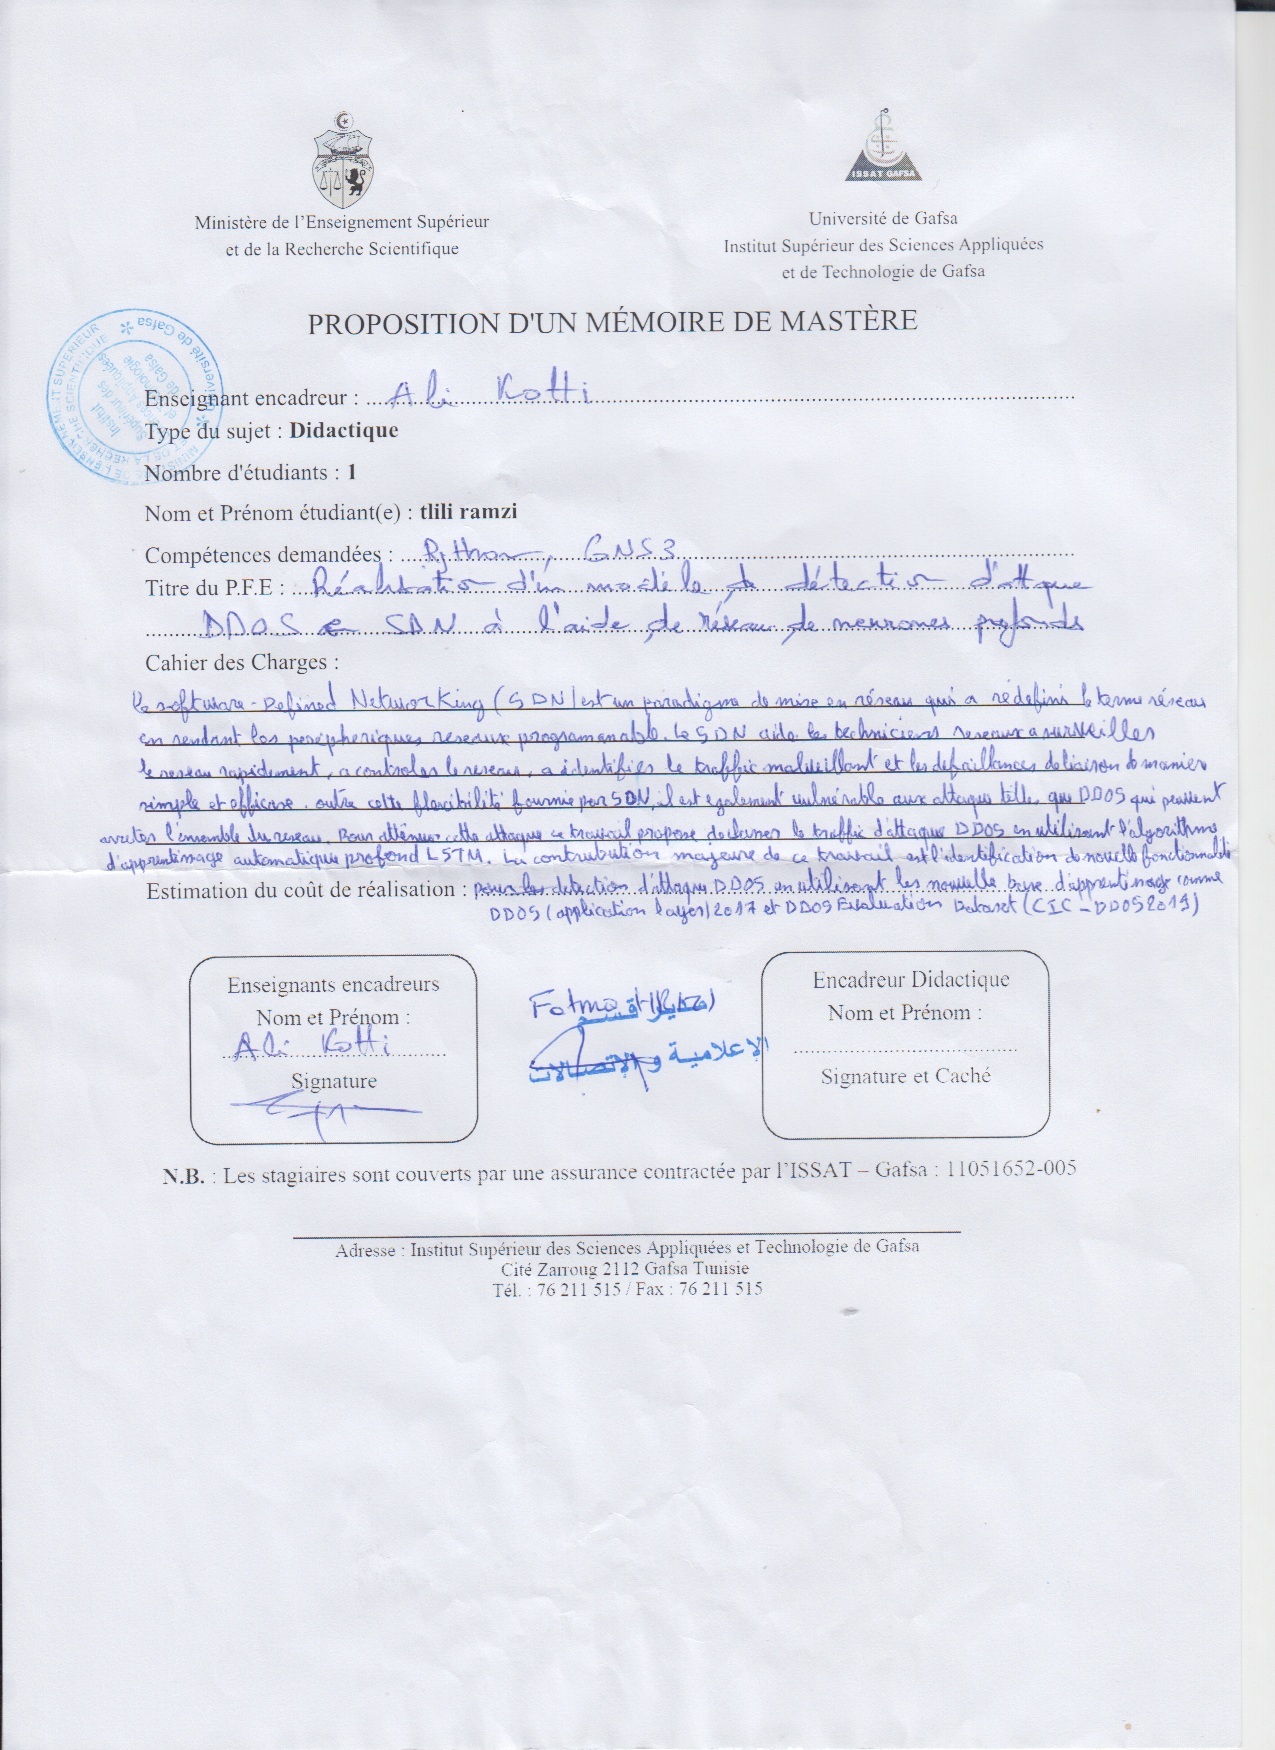 ISSAT GAFSA
Ministère de l'Enseignement Supérieur
et de la Recherche Scientifique
Université de Gafsa
Institut Supérieur des Sciences Appliquées
et de Technologie de Gafsa
PROPOSITION D'UN MÉMOIRE DE MASTÈRE
Enseignant encadreur : Ali Kotti
Type du sujet : Didactique
Nombre d'étudiants : 1
Nom et Prénom étudiant(e) : tlili ramzi
Compétences demandées : Python, GNS3
Titre du P.F.E : Réalisation d'un modèle de détection d'attque
DDOS SDN à l'aide de réseau de neurones profonds
Cahier des Charges :
Le software-Defined NetworKing (SDN) est un paradigme de mise en réseau qui a redefini le terme réseau
en rendant les peripheriques reseaux programmable. Le SDN aide les techniciens reseaux a surveiller
le reseau rapidement, a controler le reseau, a identifier le traffic malveillant et les defaillances de liaison de maniere
simple et efficace. outre cette flexibilité fournie par SDN, il est egalement vulnérable aux attaque telle que DDOS qui peuvent
arreter l'ensemble du reseau. Pour atténuer cette attaque ce travail propose de classer le traffic d'attaque DDOS en utilisant l'algorithme
d'apprentissage automatique profond LSTM. La contribution majeure de ce travail est l'identification de nouvelle fonctionnalité
Estimation du coût de réalisation : pour les detection d'attaque DDOS en utilisant les nouvelle base d'apprentissage comme
DDOS (application layer) 2017 et DDOS Evaluation Dataset (CIC-DDOS2019)
Enseignants encadreurs
Nom et Prénom :
Ali Kotti
Signature
Fatma
الإعلامية والإتصالات
Encadreur Didactique
Nom et Prénom :
Signature et Caché
N.B. : Les stagiaires sont couverts par une assurance contractée par l'ISSAT – Gafsa : 11051652-005
Adresse : Institut Supérieur des Sciences Appliquées et Technologie de Gafsa
Cité Zarroug 2112 Gafsa Tunisie
Tél. : 76 211 515 / Fax : 76 211 515